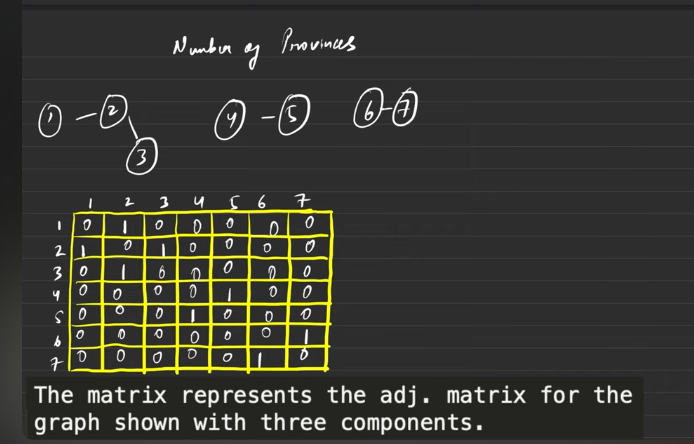 Number of Provinces
1 2 4 5 6 7
3
1 2 3 4 5 6 7
1 0 1 0 0 0 0 0
2 1 0 1 0 0 0 0
3 0 1 0 0 0 0 0
4 0 0 0 0 1 0 0
5 0 0 0 1 0 0 0
6 0 0 0 0 0 0 1
7 0 0 0 0 0 1 0
The matrix represents the adj. matrix for the
graph shown with three components.